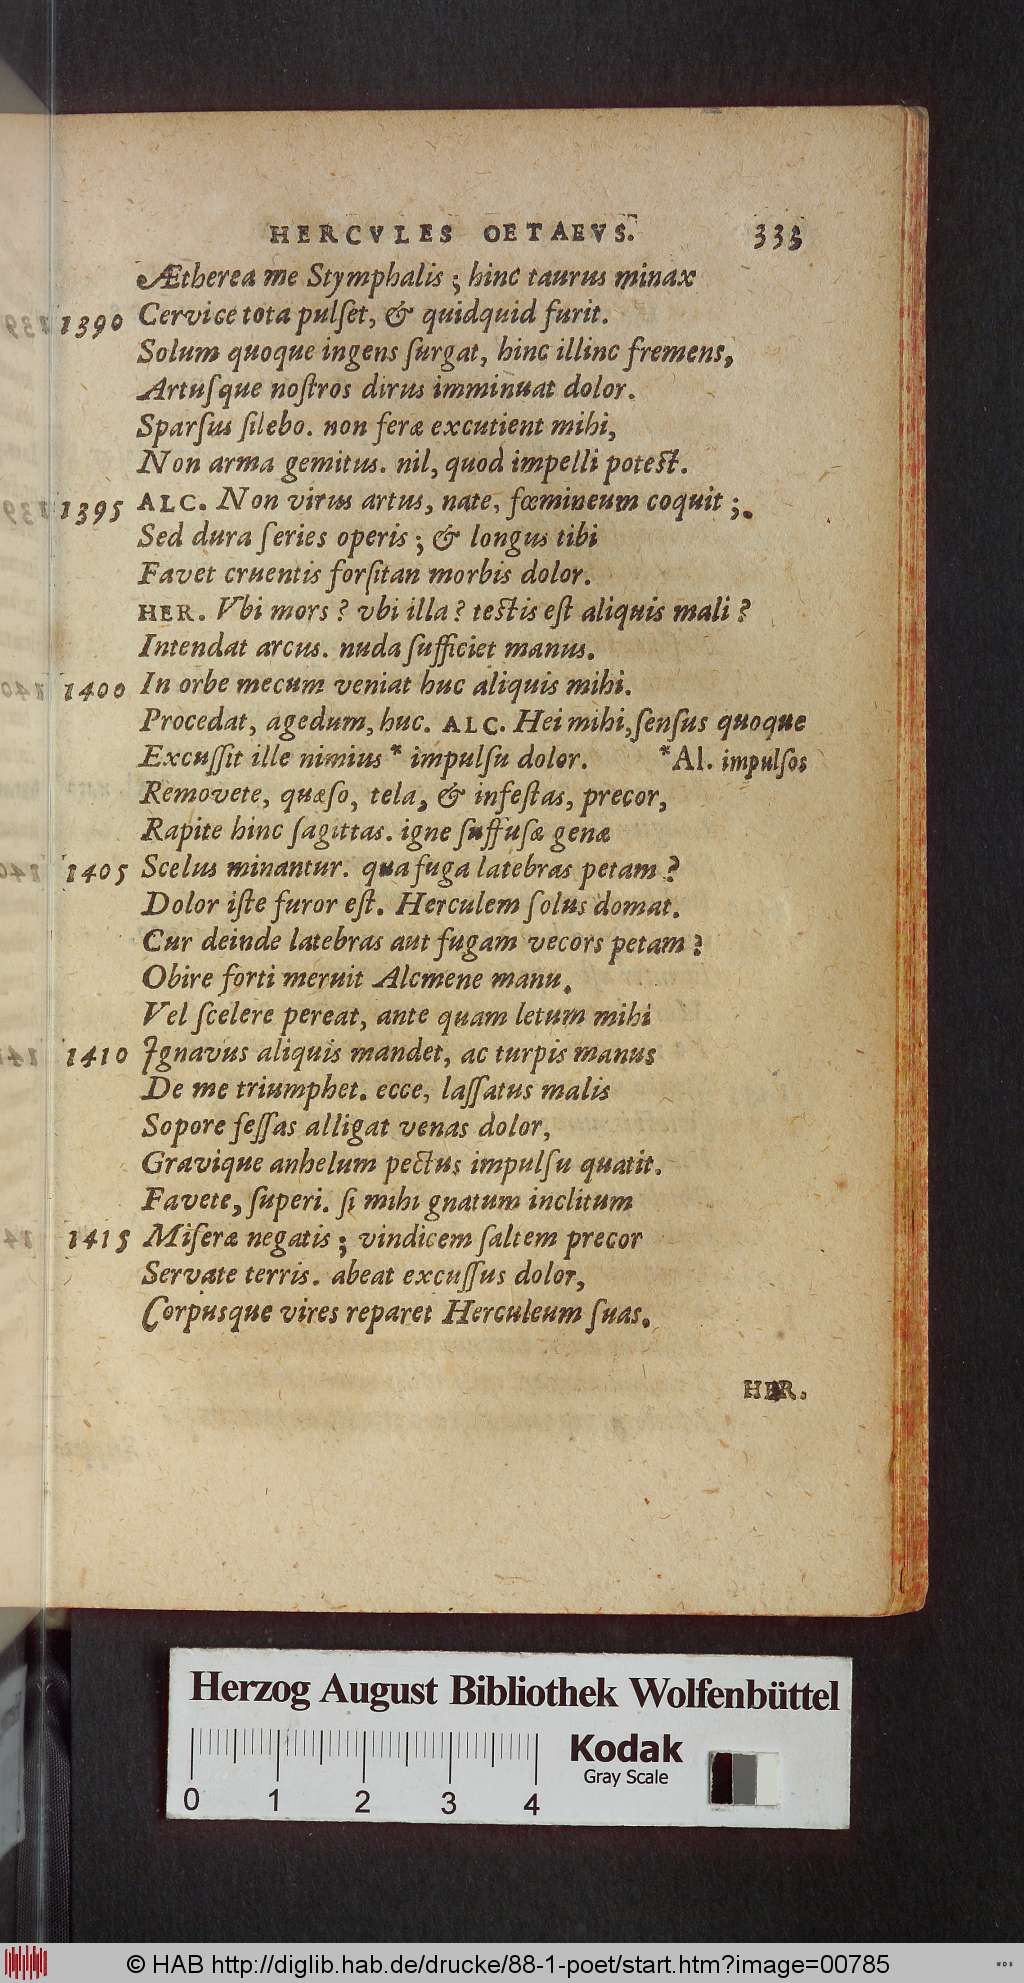 HERCVLES OETAEVS. 333
Ætherea me Stymphalis; hinc taurus minax
1390 Cervice tota pulſet, & quidquid furit.
Solum quoque ingens ſurgat, hinc illinc fremens,
Artuſque noſtros dirus imminuat dolor.
Sparſus ſilebo. non feræ excutient mihi,
Non arma gemitus. nil, quod impelli poteſt.
1395 ALC. Non virus artus, nate, fœmineum coquit;.
Sed dura ſeries operis; & longus tibi
Favet cruentis forſitan morbis dolor.
HER. Vbi mors? vbi illa? teſtis eſt aliquis mali?
Intendat arcus. nuda ſufficiet manus.
1400 In orbe mecum veniat huc aliquis mihi.
Procedat, agedum, huc. ALC. Hei mihi, ſenſus quoque
Excuſſit ille nimius * impulſu dolor. *Al. impulſos
Removete, quæſo, tela, & infeſtas, precor,
Rapite hinc ſagittas. igne ſuffuſæ genæ
1405 Scelus minantur. qua fuga latebras petam?
Dolor iſte furor eſt. Herculem ſolus domat.
Cur deinde latebras aut fugam vecors petam?
Obire forti meruit Alcmene manu.
Vel ſcelere pereat, ante quam letum mihi
1410 Ignavus aliquis mandet, ac turpis manus
De me triumphet. ecce, laſſatus malis
Sopore feſſas alligat venas dolor,
Gravique anhelum pectus impulſu quatit.
Favete, ſuperi. ſi mihi gnatum inclitum
1415 Miſeræ negatis; vindicem ſaltem precor
Servate terris. abeat excuſſus dolor,
Corpuſque vires reparet Herculeum ſuas.
HER.
Herzog August Bibliothek Wolfenbüttel
Kodak
Gray Scale
0 1 2 3 4
© HAB http://diglib.hab.de/drucke/88-1-poet/start.htm?image=00785